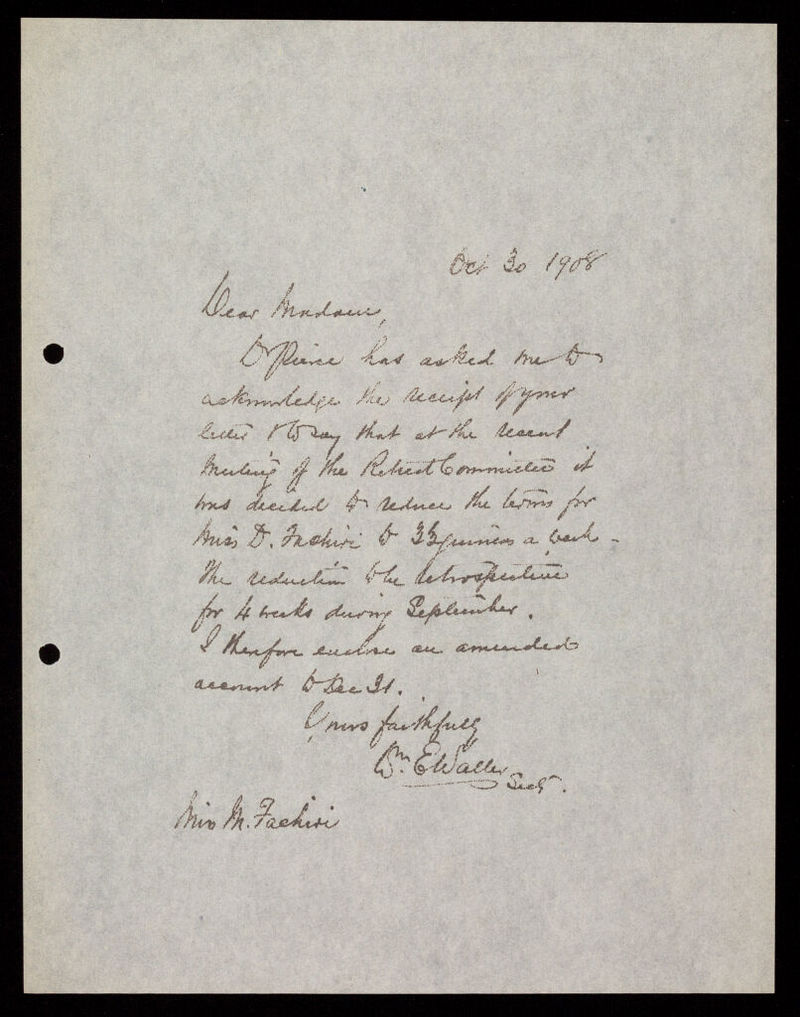 Oct 30 1908
Dear Madam,
Dr Pierce has asked me to
acknowledge the receipt of your
letter & to say that at the recent
meeting of the Retreat Committee it
was decided to reduce the terms for
Miss D. Fachiri to 3½ guineas a week -
the reduction to be retrospective
for 4 weeks during September.
I therefore enclose an amended
account to Dec 31.
Yours faithfully
Wm. E Waller
Secy.
Miss M. Fachiri